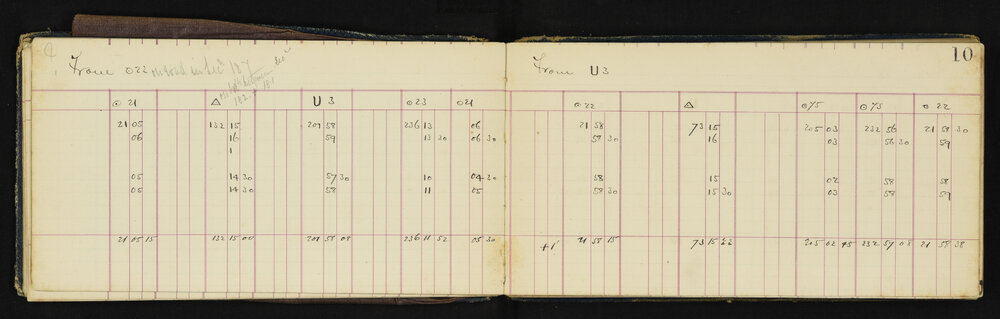 From ⊙22
From U 3
10
⊙ 21 △ U 3 ⊙23 ⊙21
21 05 132 15 201 58 236 13 06
06 16 59 13 30 06 30
1
05 14 30 57 30 10 04 30
05 14 30 58 11 05
21 05 15 132 15 00 201 58 08 236 11 52 05 30
⊙22 △ ⊙75 ⊙73 ⊙ 22
21 58 73 15 205 03 232 56 21 58 30
58 30 16 03 56 30 59
58 15 02 58 58
58 30 15 30 03 58 59
+1' 21 58 15 73 15 22 205 02 45 232 57 08 21 58 38